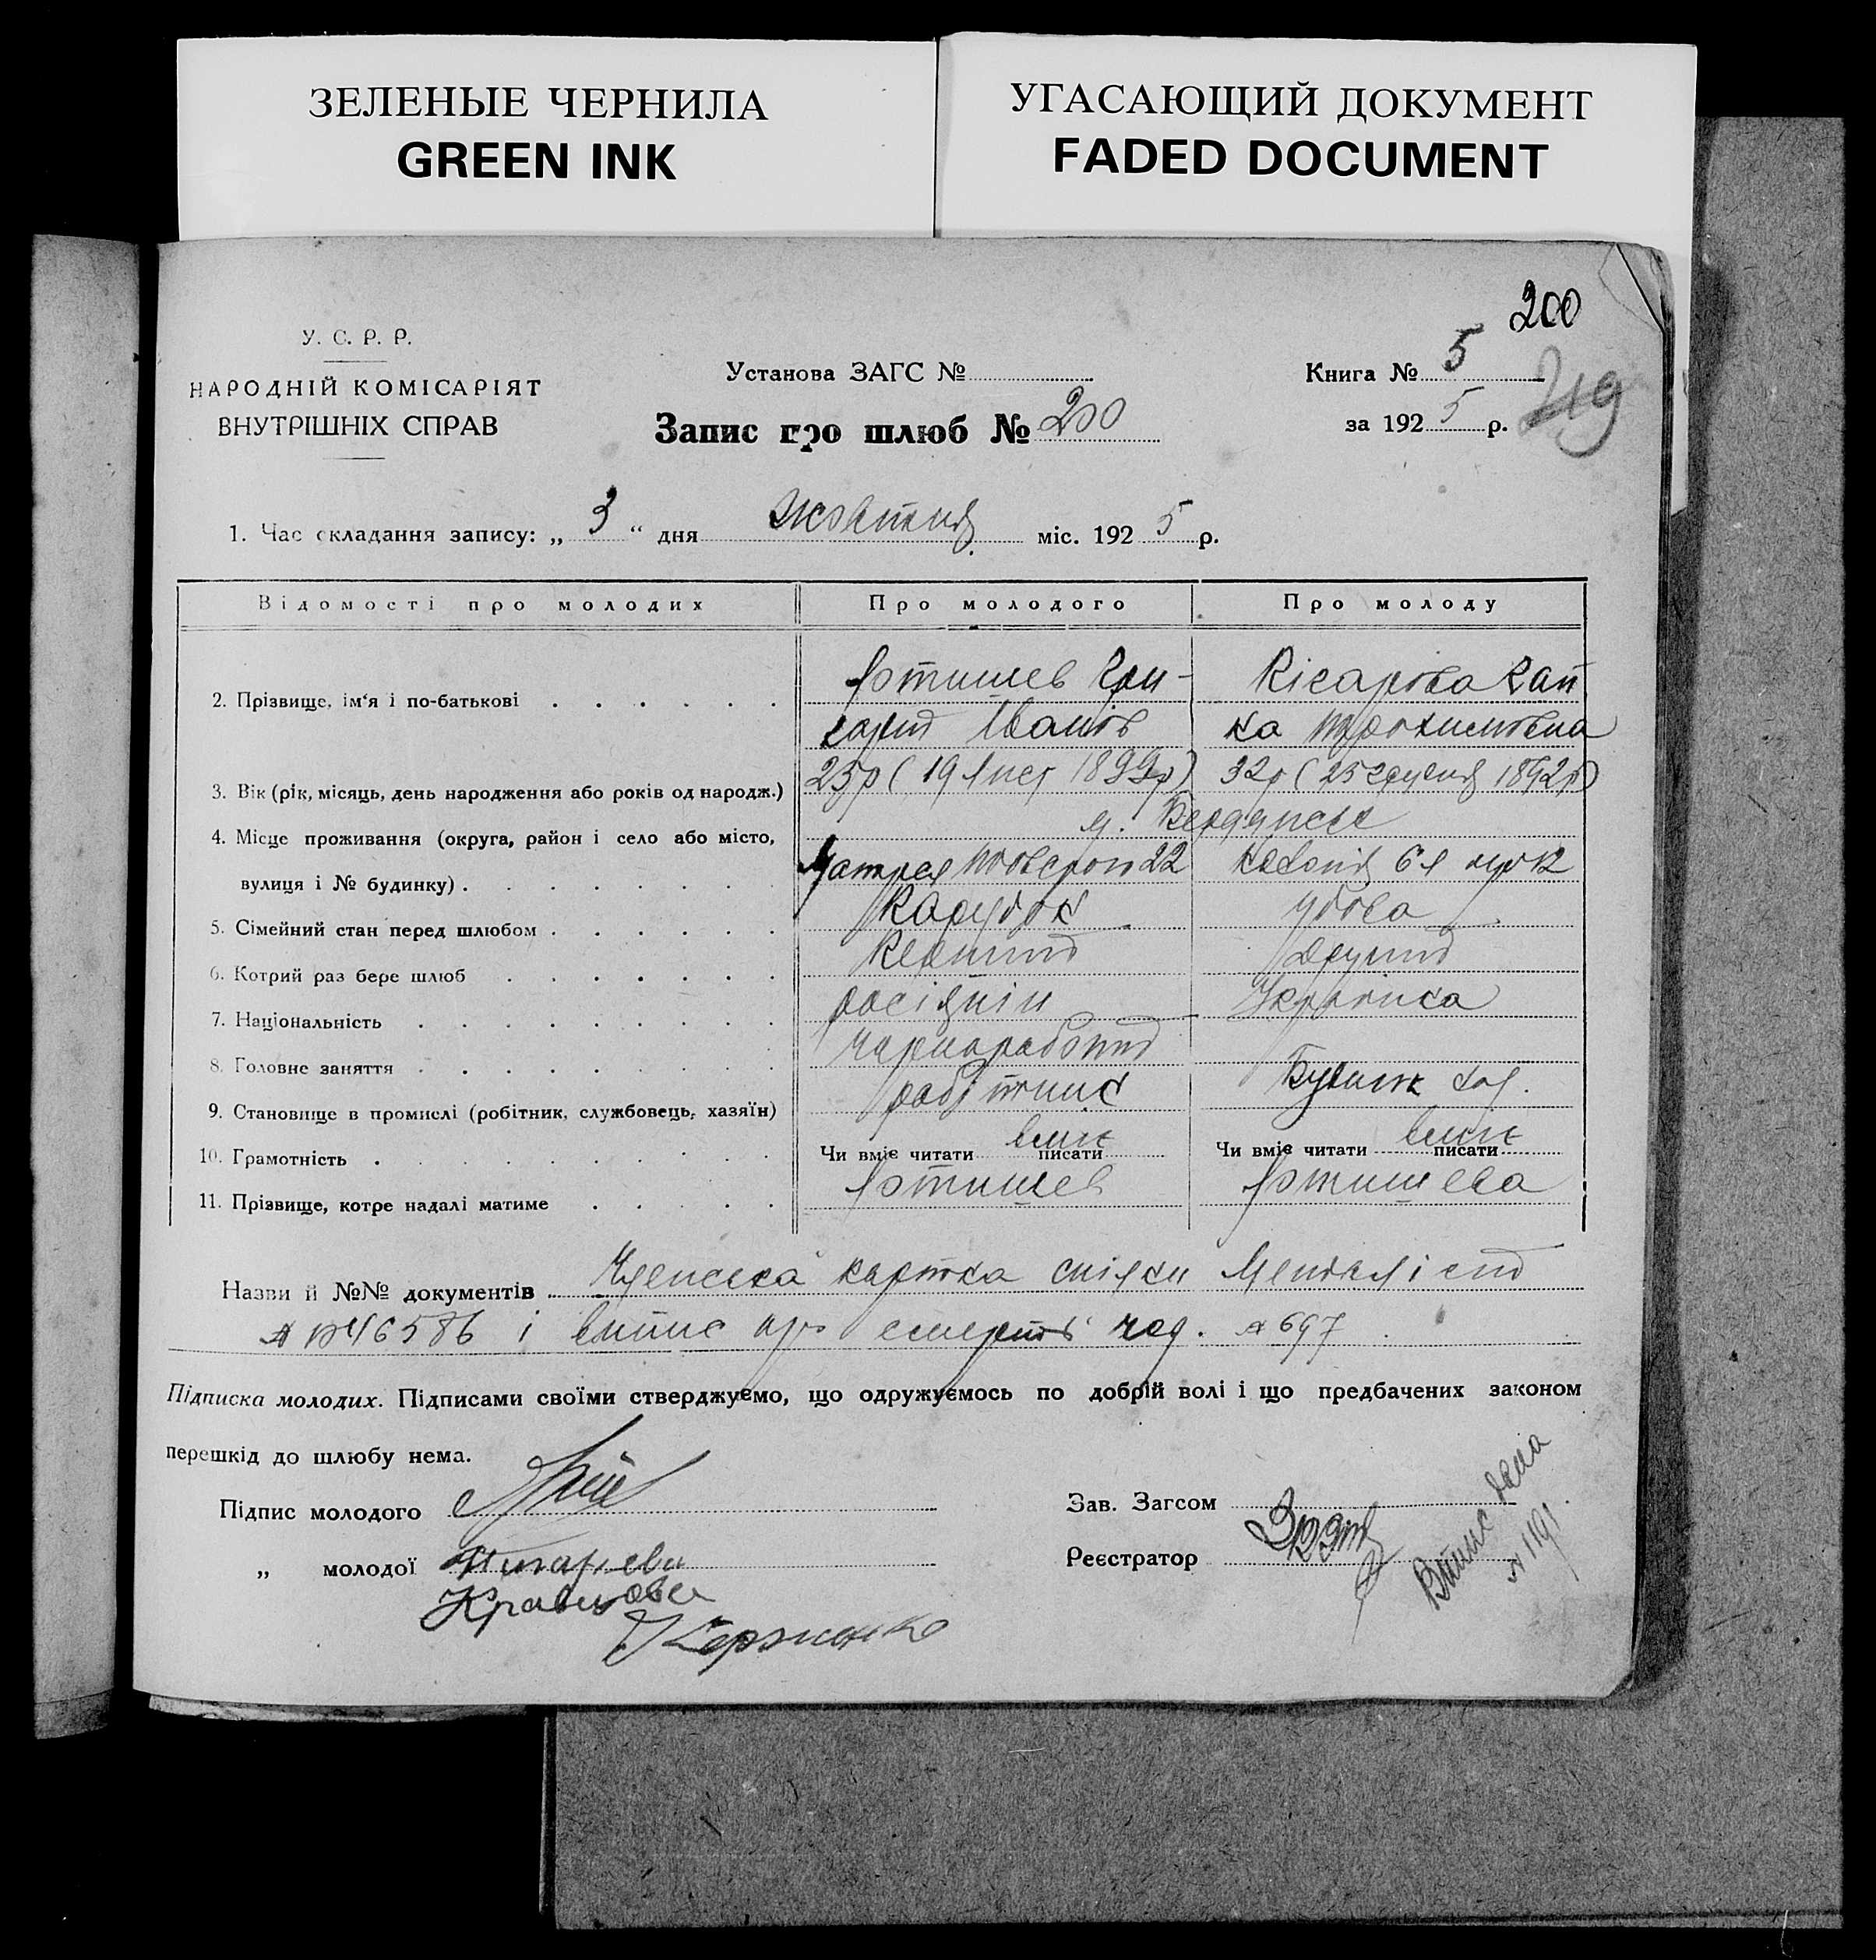 ЗЕЛЕНЫЕ ЧЕРНИЛА
GREEN INK
УГАСАЮЩИЙ ДОКУМЕНТ
FADED DOCUMENT
200
У. С. Р. Р.
НАРОДНІЙ КОМІСАРІЯТ
ВНУТРІШНІХ СПРАВ
Установа ЗАГС №
Запис про шлюб № 200
Книга № 5
за 192 5 р.
219
1. Час складання запису: „ 3 “ дня жовтня міс. 192 5 р.
Відомості про молодих
Про молодого
Про молоду
2. Прізвище, ім'я і по-батькові
Лотишев Гри-
горий Іванов
3. Вік (рік, місяць, день народження або років од народж.)
25р ( 19 Лист 1899р)
32р ( 25 грудня 1892р)
4. Місце проживання (округа, район і село або місто,
вулиця і № будинку)
м. Бердянськ
22
Колонія
5. Сімейний стан перед шлюбом
Парубок
Удова
6. Котрий раз бере шлюб
Первий
Другий
7. Національність
росіянін
Українка
8. Головне заняття
чорноробочий
9. Становище в промислі (робітник, службовець, хазяїн)
робітник
10. Грамотність
Чи вміє читати писати вміє
Чи вміє читати писати вміє
11. Прізвище, котре надалі матиме
Лотишев
Лотишева
Назви й №№ документів Членська картка спілки
і витис про смерть чол. № 697
Підписка молодих. Підписами своїми стверджуємо, що одружуємось по добрій волі і що предбачених законом
перешкід до шлюбу нема.
Підпис молодого
„ молодої
Кравцова
Зав. Загсом
Реєстратор
Витис дана
№ 1191